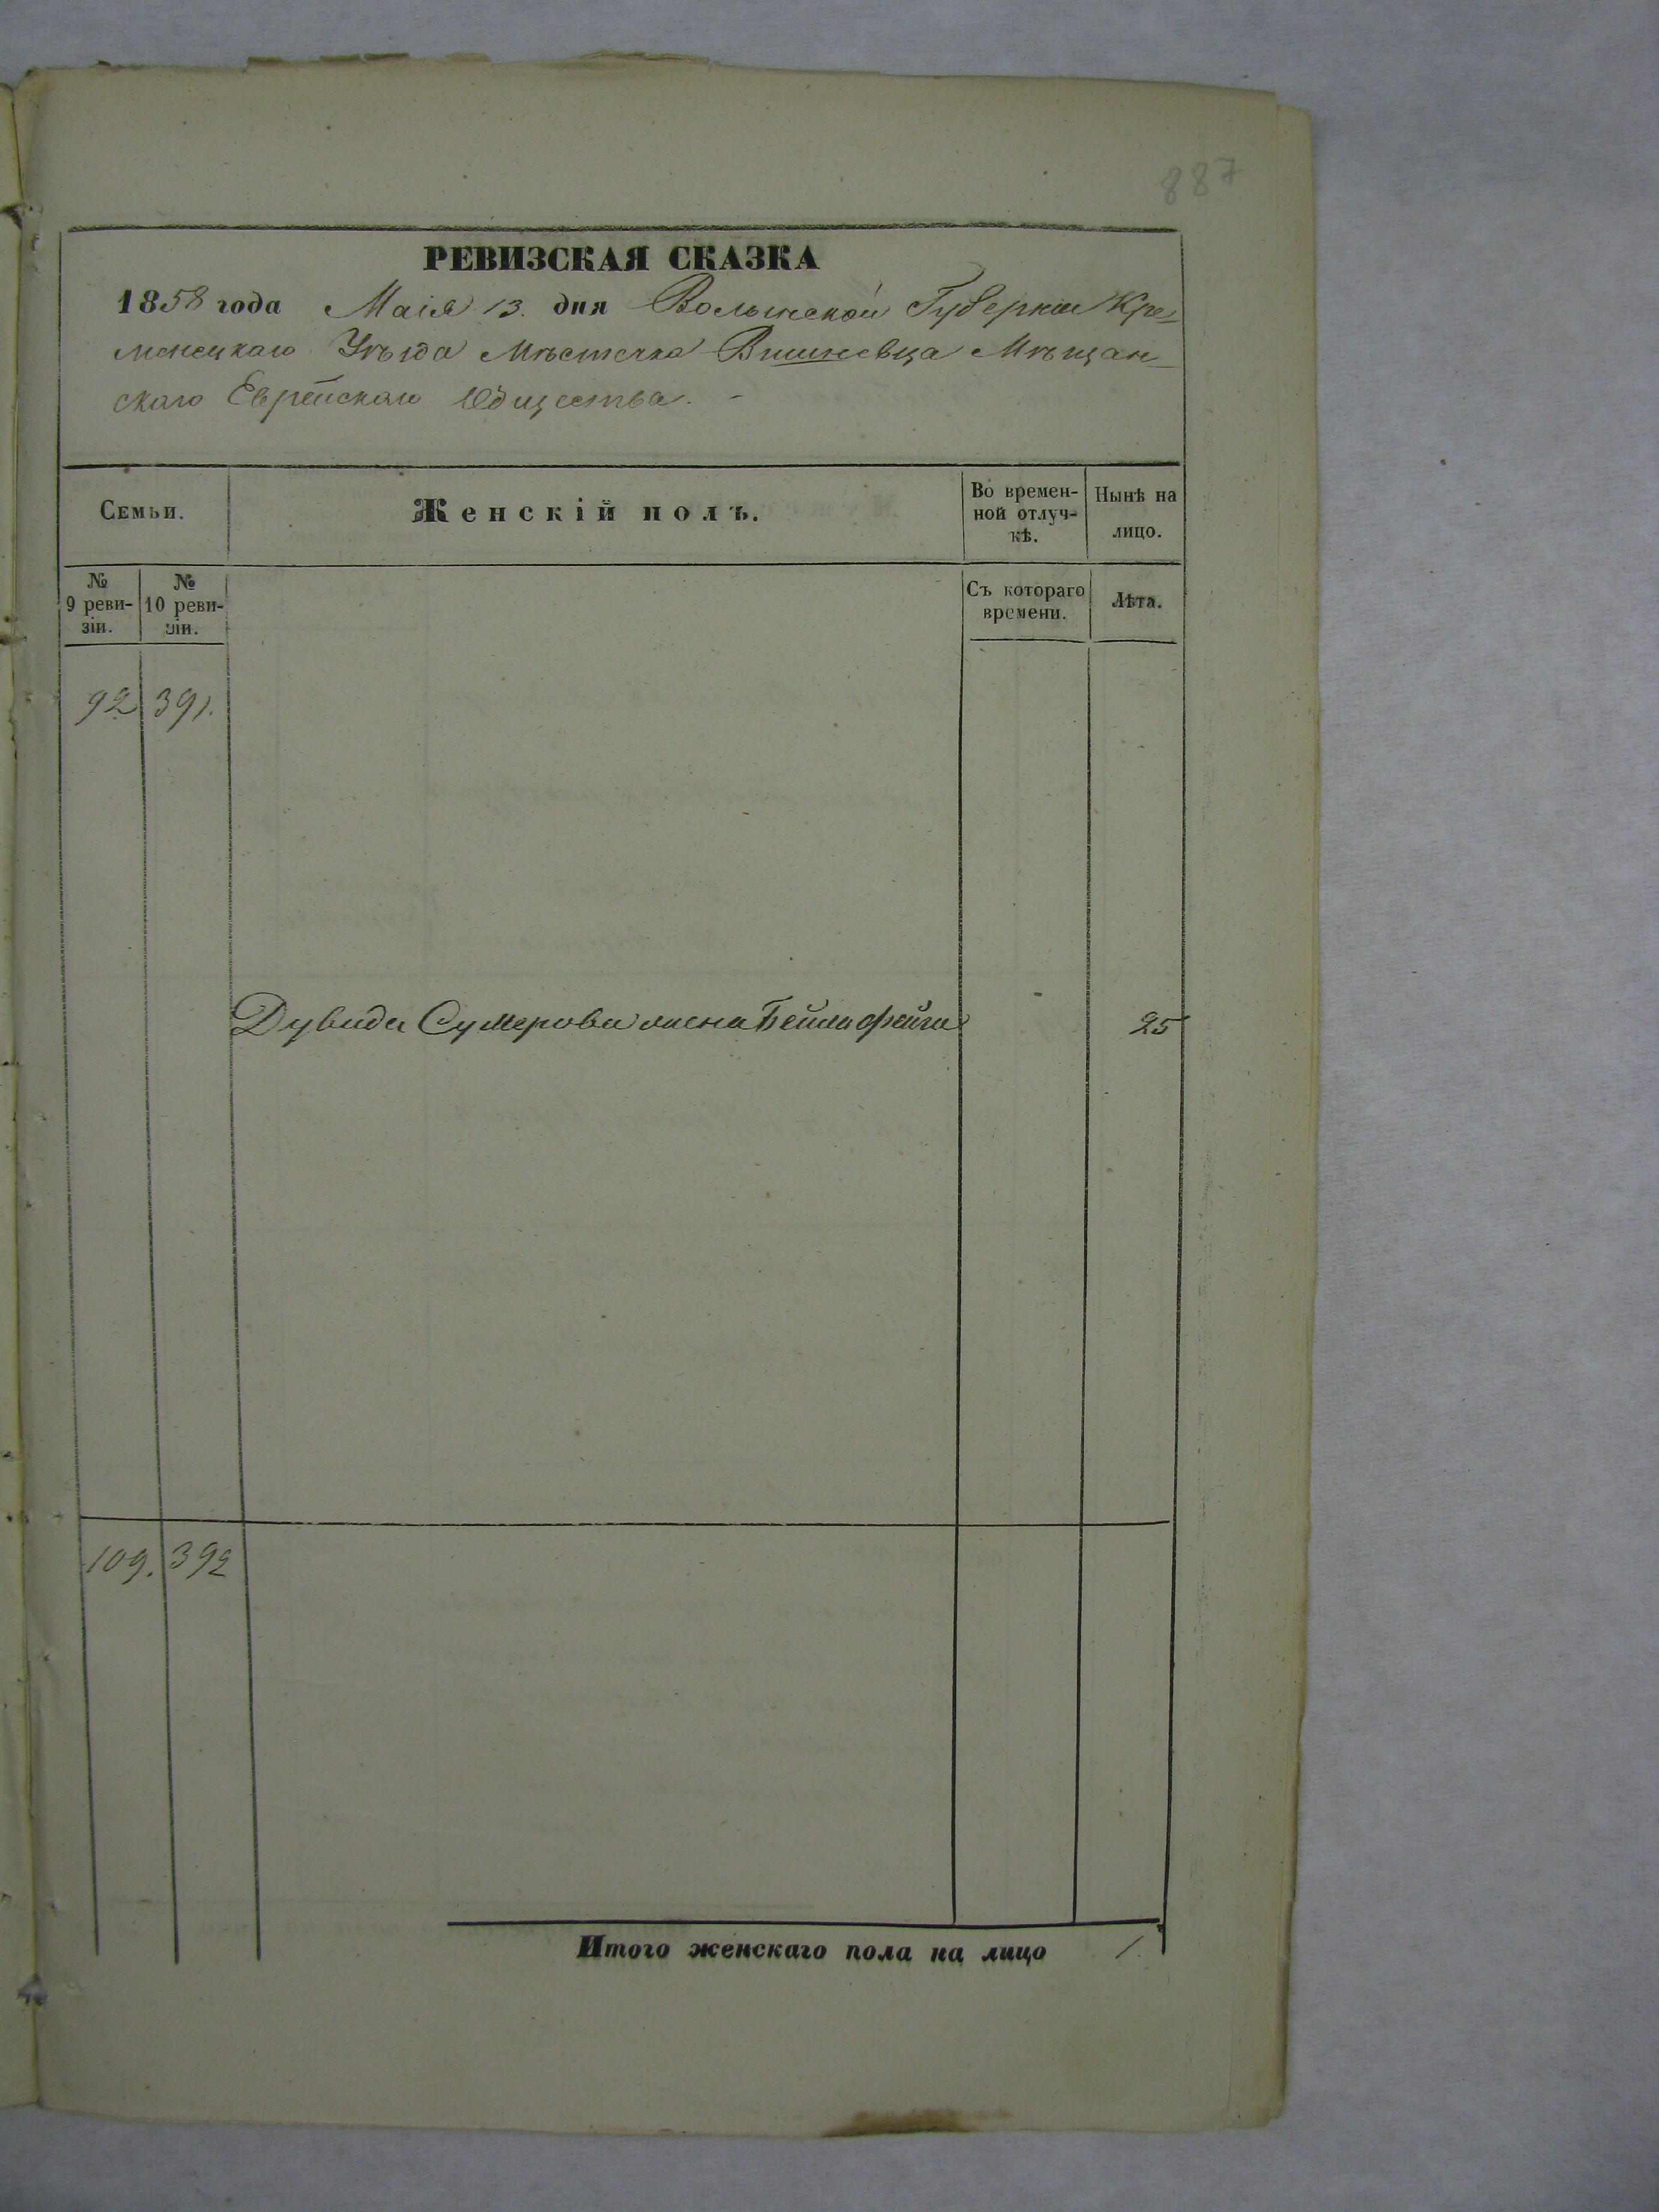 887
РЕВИЗСКАЯ СКАЗКА
1858 года Маія 13. дня Волынской Губерніи Кре-
менецкаго Уѣзда Мѣстечка Вишневца Мѣщан-
скаго Еврейскаго Общества.
Семьи.
Женскій полъ.
Во времен-
ной отлуч-
кѣ.
Нынѣ на
лицо.
№
9 реви-
зіи.
№
10 реви-
зіи.
Съ котораго
времени.
Лѣта.
92 391.
Дувида Сумерова жена Бейла Фейга 25
109. 392
Итого женскаго пола на лицо 1.